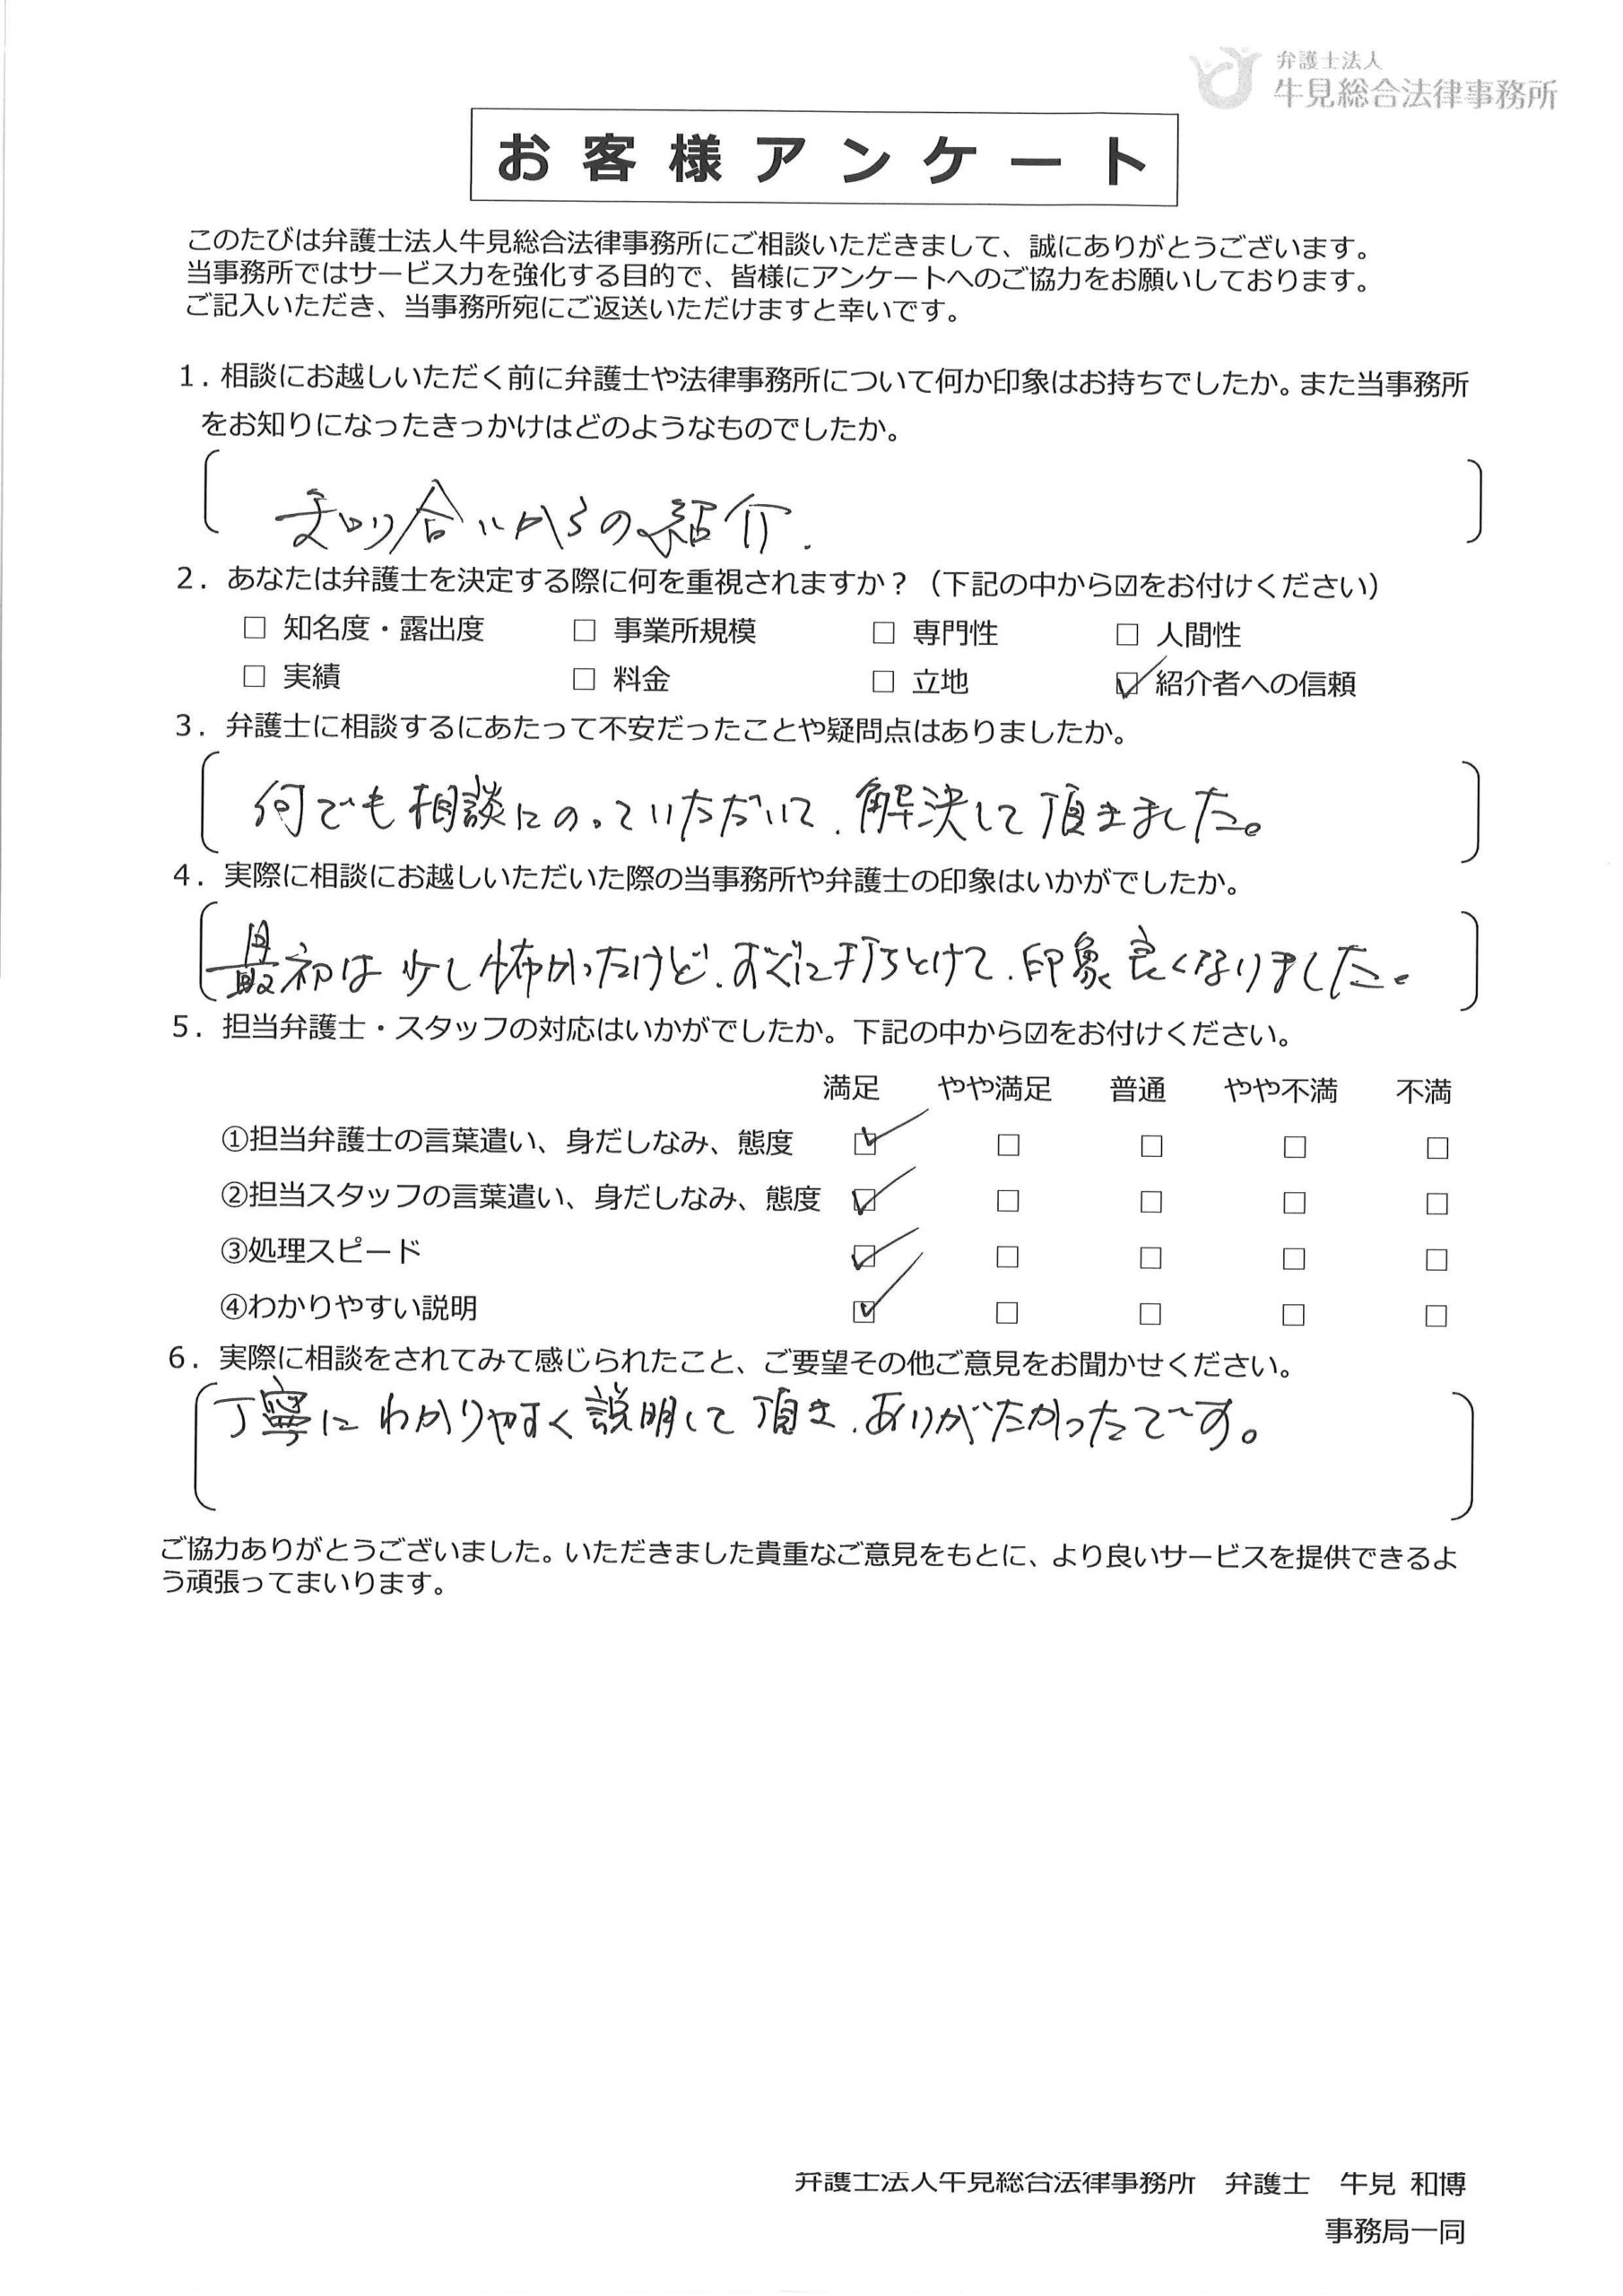 弁護士法人
牛見総合法律事務所
お客様アンケート
このたびは弁護士法人牛見総合法律事務所にご相談いただきまして、誠にありがとうございます。
当事務所ではサービス力を強化する目的で、皆様にアンケートへのご協力をお願いしております。
ご記入いただき、当事務所宛にご返送いただけますと幸いです。
1．相談にお越しいただく前に弁護士や法律事務所について何か印象はお持ちでしたか。また当事務所
をお知りになったきっかけはどのようなものでしたか。
知り合いからの紹介.
2．あなたは弁護士を決定する際に何を重視されますか？（下記の中から☑をお付けください）
□ 知名度・露出度 □ 事業所規模 □ 専門性 □ 人間性
□ 実績 □ 料金 □ 立地 ☑ 紹介者への信頼
3．弁護士に相談するにあたって不安だったことや疑問点はありましたか。
何でも相談にのっていただいて、解決して頂きました。
4．実際に相談にお越しいただいた際の当事務所や弁護士の印象はいかがでしたか。
最初は少し怖かったけど、すぐに打ちとけて、印象良くなりました。
5．担当弁護士・スタッフの対応はいかがでしたか。下記の中から☑をお付けください。
満足 やや満足 普通 やや不満 不満
①担当弁護士の言葉遣い、身だしなみ、態度 ☑ □ □ □ □
②担当スタッフの言葉遣い、身だしなみ、態度 ☑ □ □ □ □
③処理スピード ☑ □ □ □ □
④わかりやすい説明 ☑ □ □ □ □
6．実際に相談をされてみて感じられたこと、ご要望その他ご意見をお聞かせください。
丁寧にわかりやすく説明して頂き、ありがたかったです。
ご協力ありがとうございました。いただきました貴重なご意見をもとに、より良いサービスを提供できるよ
う頑張ってまいります。
弁護士法人牛見総合法律事務所　弁護士　牛見 和博
事務局一同